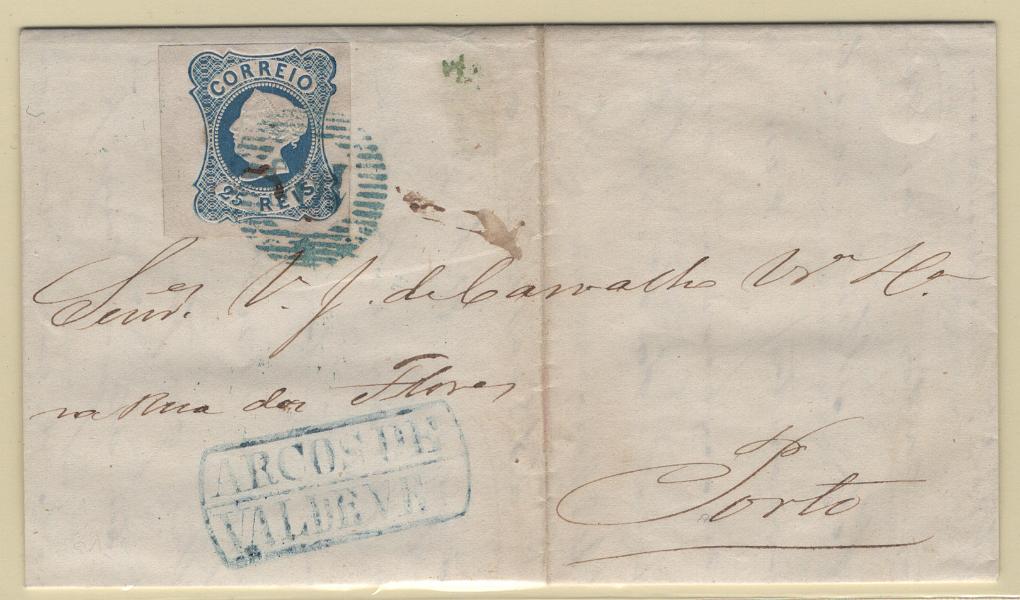 CORREIO
25 REIS
Senr.es V. J. de Carvalho
na Rua das Flores
ARCOS DE
VALDEVE
Porto